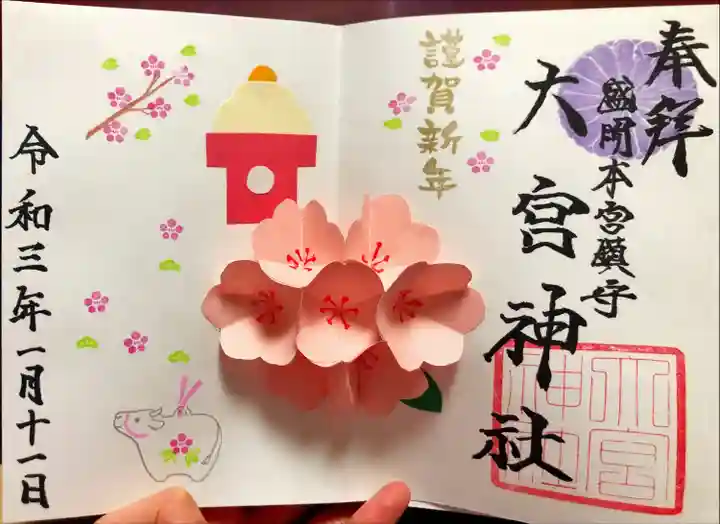 奉拝
盛岡本宮鎮守
大宮神社
大宮神社
謹賀新年
令和三年一月十一日